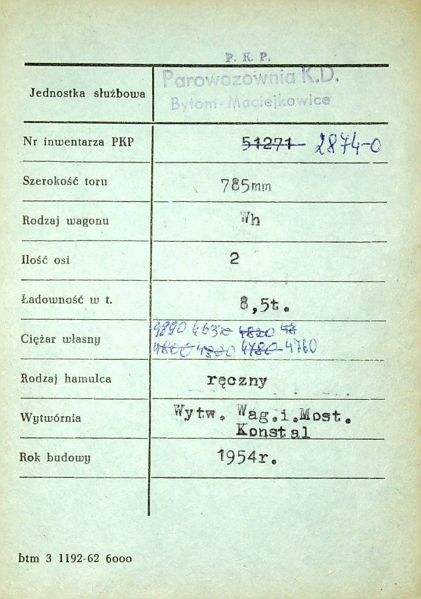 P. K. P.
Jednostka służbowa
Parowozownia K.D.
Bytom-Maciejkowice
Nr inwentarza PKP 51271 2874-0
Szerokość toru 785mm
Rodzaj wagonu Wh
Ilość osi 2
Ładowność w t. 8,5t.
4890 4820
Ciężar własny
4800 4780 4760
Rodzaj hamulca ręczny
Wytwórnia Wytw. Wag.i.Most.
Konstal
Rok budowy 1954r.
btm 3 1192-62 6000